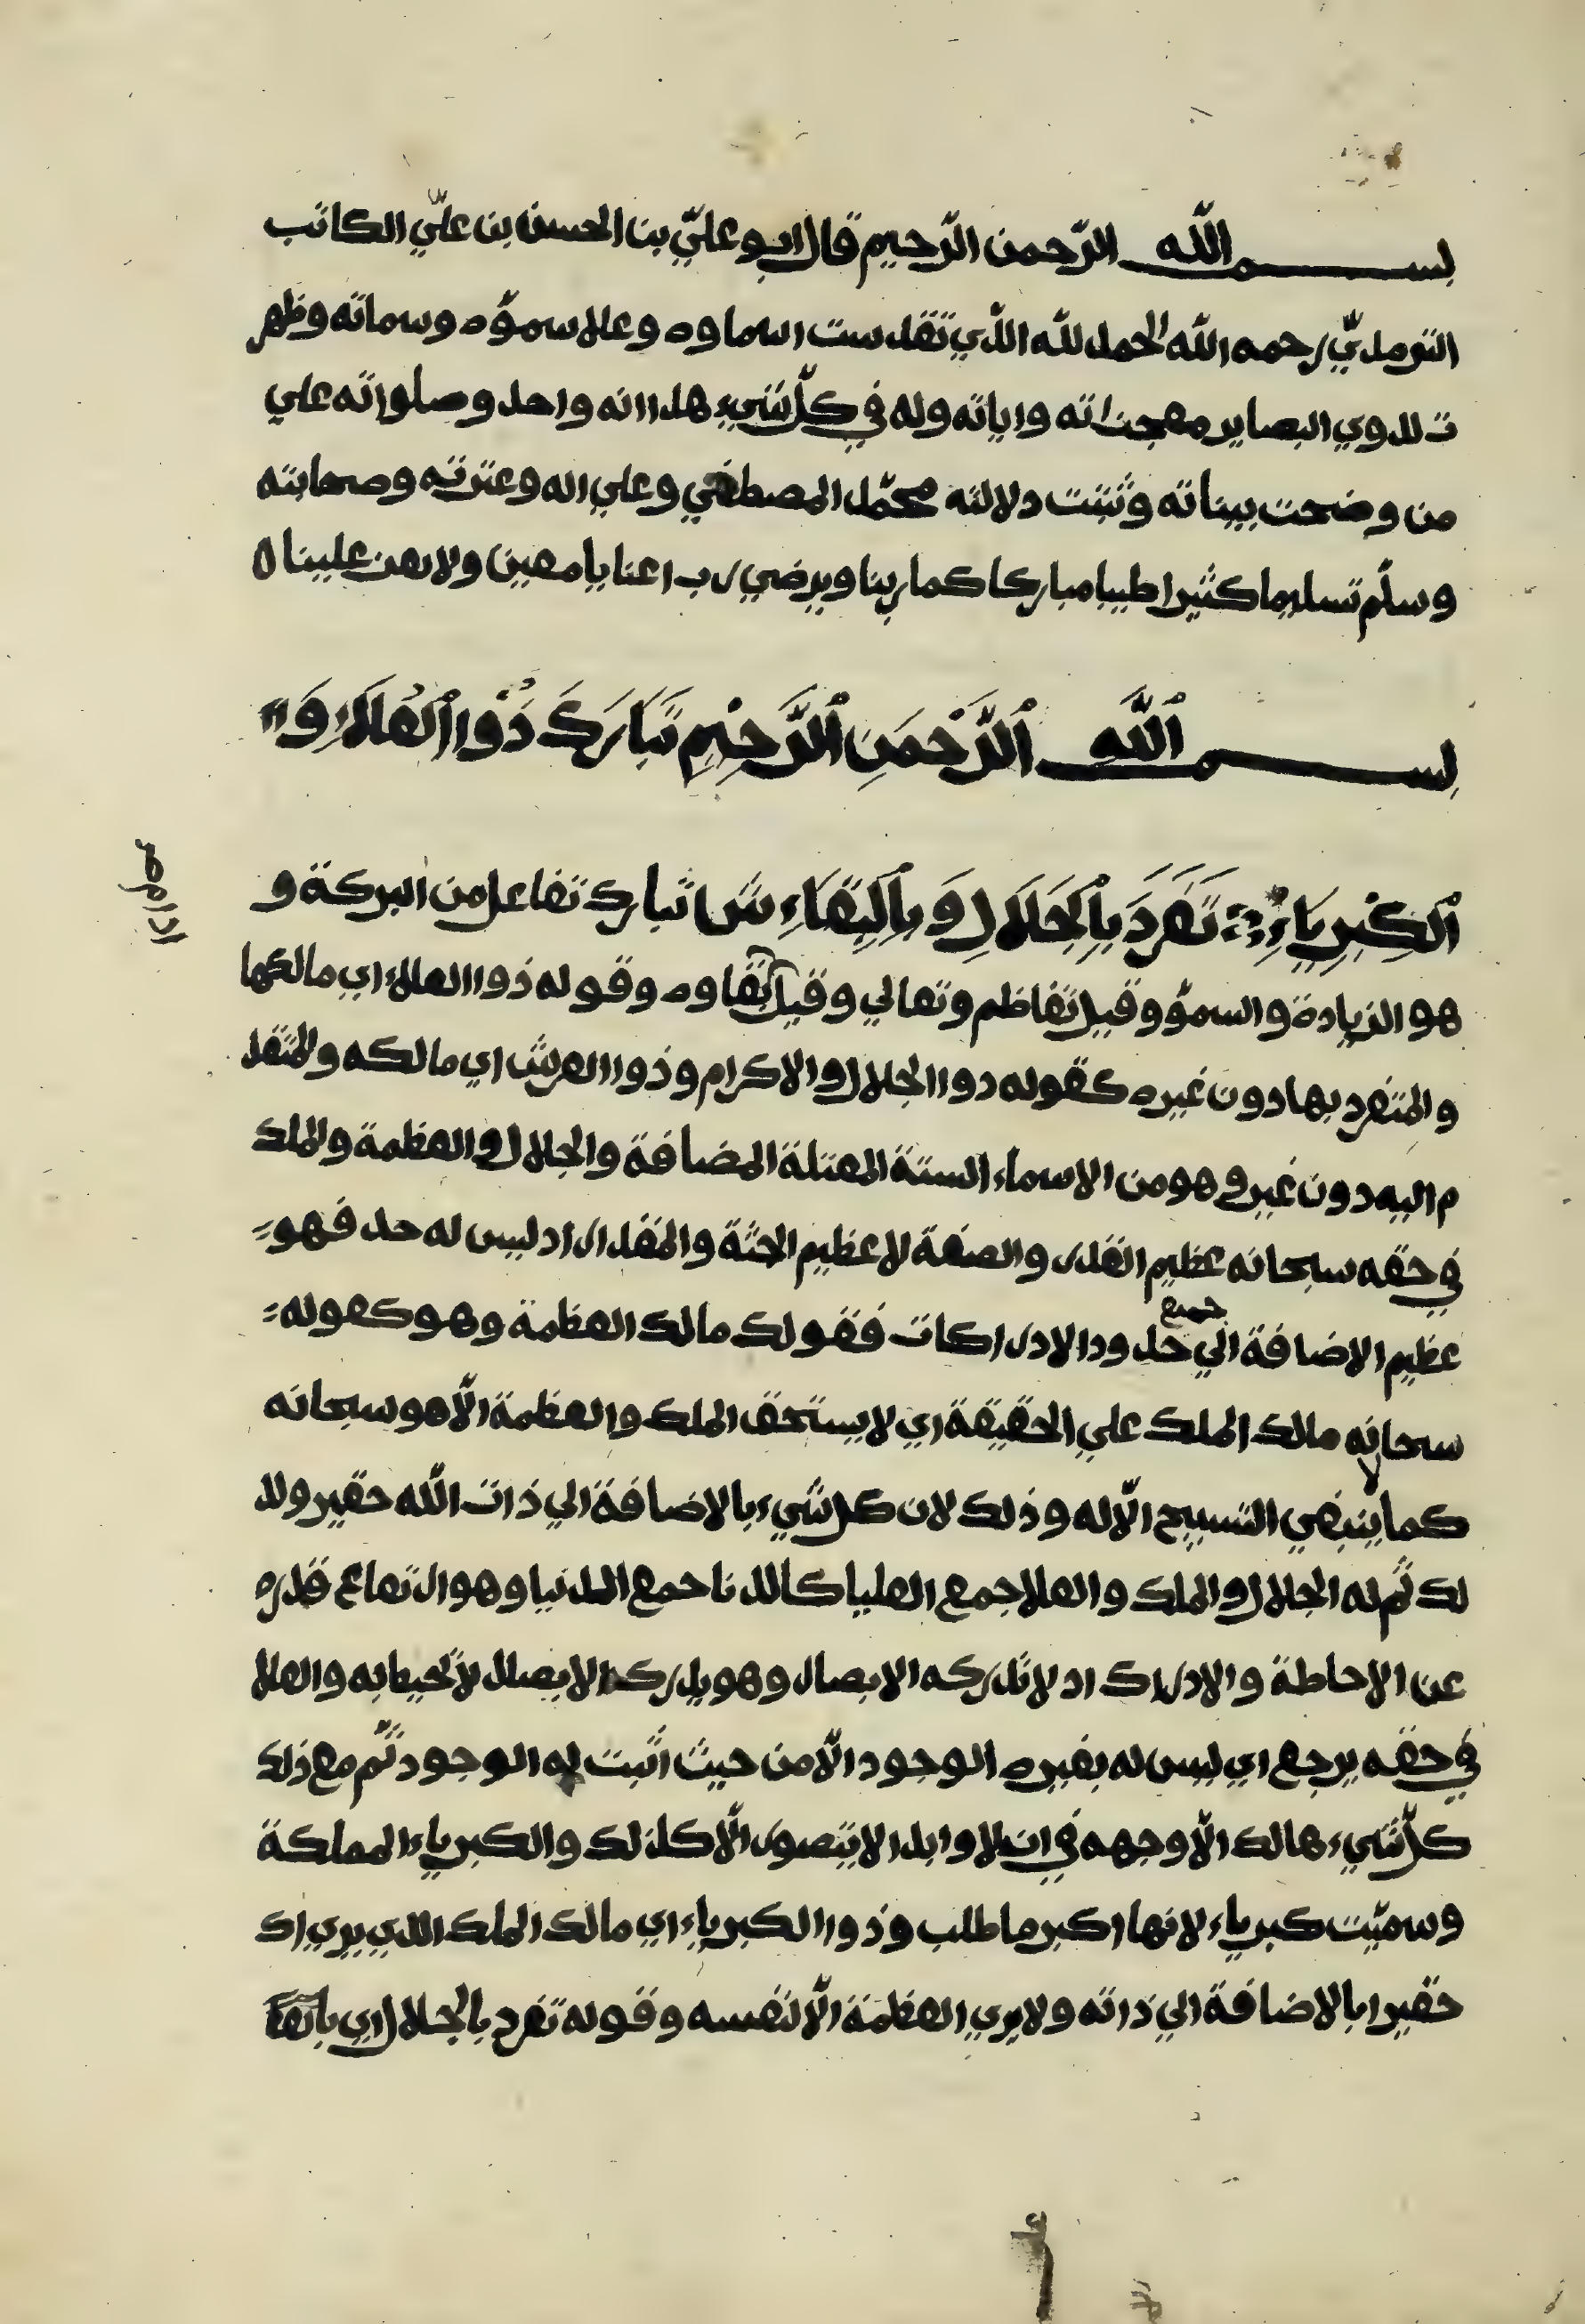 بسم الله الرّحمن الرّحيم قال ابو عليّ بن الحسن بن عليّ الكاتب
الترمذيّ رحمه الله الحمد لله الذّي تقدست اسماوه وعلا سموّه وسماته وظهر
ت لذوي البصاير معجزاته واياته وله في كلّ شيء هذا انه واحد وصلواته علي
من وضحت بيناته وثبتت دلالته محمّد المصطفي وعلي اله وعترته وصحابته
وسلّم تسليما كثيرا طيبا مباركا كما ربنا ويرضي رب اعنا يا معين ولا تعن علينا ه
بِسم اللَّهِ الرَّحْمَنِ الرَّحِيْمِ تَبَارَكَ ذُوْا الْعُلَاءِ وَ
الْكِبْرِيَاءِ تَفَرَدَ بِالْجَلَالِ وَبِالْبَقَاءِ ش تبارك تفاعل من البركة و
هو الزيادة والسموّ وقيل تعاظم وتعالي وقيل بقاوه وقوله ذوا العلاء اي مالكها
والمتفرد بها دون غيره كقوله ذوا الجلال والاكرام وذوا العرش اي مالكه والمتقد
م اليه دون غيره وهو من الاسماء الستة المعتلة المضافة والجلال والعظمة والملك
في حقه سبحانه عظيم القدر والصفة لا عظيم الجثة والمقدار اد ليس له حد فهو
عظيم الاضافة الي جميع حدود الادراكات فقولك مالك العظمة وهو كقوله
سبحانه مالك الملك علي الحقيقة اي لا يستحق الملك والعظمة الّا هو سبحانه
كما لا ينبغي التسبيح الّا له وذلك لان كل شيء بالاضافة الي ذات الله حقير ولذ
لك ثم له الجلال والملك والعلا جمع العليا كالدنا جمع الدنيا وهو ارتفاع قدره
عن الاحاطة والادراك اد لا تدركه الابصار وهو يدرك الابصار لا تحيط به والعلا
في حقه يرجع اي ليس له بغيره الوجود الّا من حيث اثبت له الوجود ثم مع ذلك
كلّ شيء هالك الّا وجهه في ازلا وابدا لا يتصور الّا كذلك والكبرياء المملكة
وسميّت كبرياء لانها اكبر ما طلب وذوا الكبرياء اي مالك الملك الذي يري اك
حقيرا بالاضافة الي ذاته ولا يري العظمة الّا لنفسه وقوله تفرد بالجلال اي